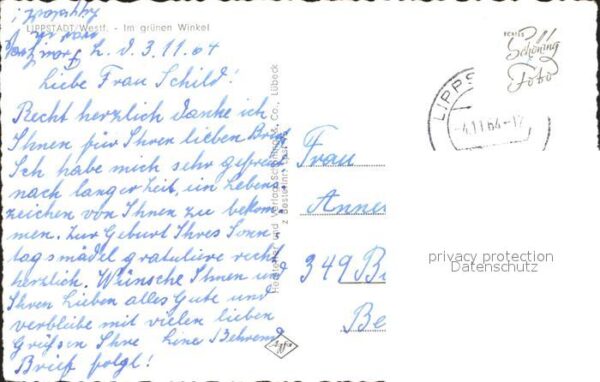 LIPPSTADT/Westf. - Im grünen Winkel
d. 3.11.64
Liebe Frau Schild!
Recht herzlich danke ich
Ihnen für Ihren lieben Brief
Ich habe mich sehr gefreut
nach langer Zeit, ein Lebens
zeichen von Ihnen zu bekom
men. Zur Geburt Ihres Sonn
tagsmädel gratuliere recht
herzlich. Wünsche Ihnen und
Ihren Lieben alles Gute und
verbleibe mit vielen lieben
Grüßen Ihre Line Behrend
Brief folgt!
Hersteller und Verlag Schöning & Co., Lübeck
Agfa
Schöning
Foto
LIPPS
-4.11.64-12
Frau
Anne
349 B
Be
privacy protection
Datenschutz